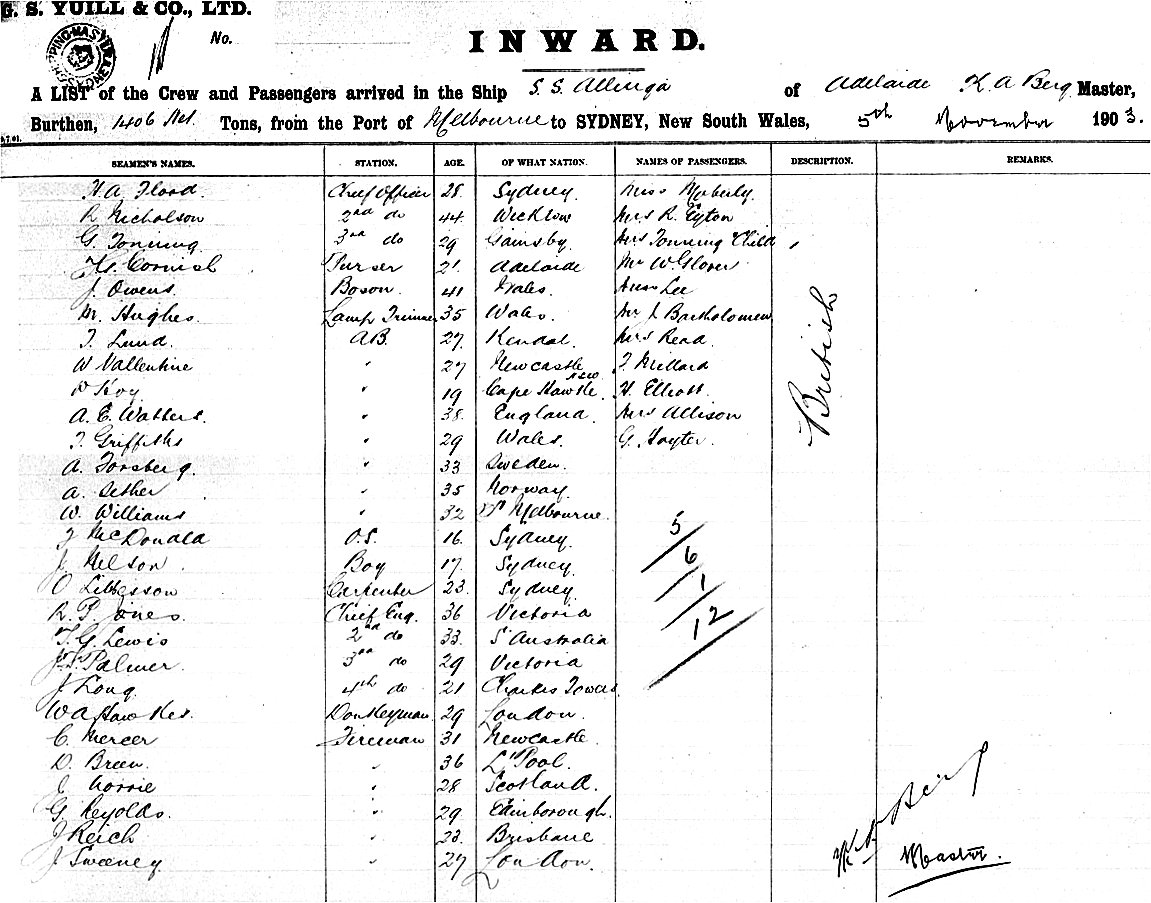 G. S. YUILL & CO., LTD.
No.
INWARD.
A LIST of the Crew and Passengers arrived in the Ship S.S. Allinga of Adelaide K. A Berg Master,
Burthen, 1406 Net Tons, from the Port of Melbourne to SYDNEY, New South Wales, 5th November 1903.
SEAMEN'S NAMES. STATION. AGE. OF WHAT NATION. NAMES OF PASSENGERS. DESCRIPTION. REMARKS.
H. A. Flood. Chief Officer 28. Sydney. Miss Moberly.
R Nicholson 2nd do 44. Wicklow Mrs R. Eyton
G. Tonning. 3rd do 29 Gainsby. Mrs Tonning Child
H. Cornish Purser 21. Adelaide Mr W Glover
J. Owens. Boson. 41 Wales. Miss Lee
M. Hughes. Lamp Trimmer 35 Wales. Mr J Bartholomew
T. Lund. A.B. 27. Kendal. Mrs Read.
W Vallentine " 27 Newcastle NSW T. Millard
Hoy " 19 Cape Hawke. H. Elliott.
A. E. Watters. " 38. England. Mrs Allison
T. Griffiths " 29 Wales. G. Hayter.
British
A. Forsberg. " 33 Sweden.
A. Sether " 35 Norway.
W. Williams " 32 Pt Melbourne.
McDonald O.S. 16. Sydney.
J. Nelson. Boy 17. Sydney
O Carpenter 23. Sydney.
R. P. Jones. Chief Eng. 36 Victoria
T. G. Lewis 2nd do 33. S' Australia
Palmer. 3rd do 29 Victoria
J. Long 4th do 21 Charters Towers.
W A Hawkes. Donkeyman 29 London.
C. Mercer Fireman 31 Newcastle.
D. Breen. " 36 L'Pool.
J. Norrie " 28 Scotland.
G. Reyolds. " 29 Edinborough.
J Reich " 23. Brisbane
J Sweeney " 27 London.
5
6
1
12
K. A. Berg
Master.